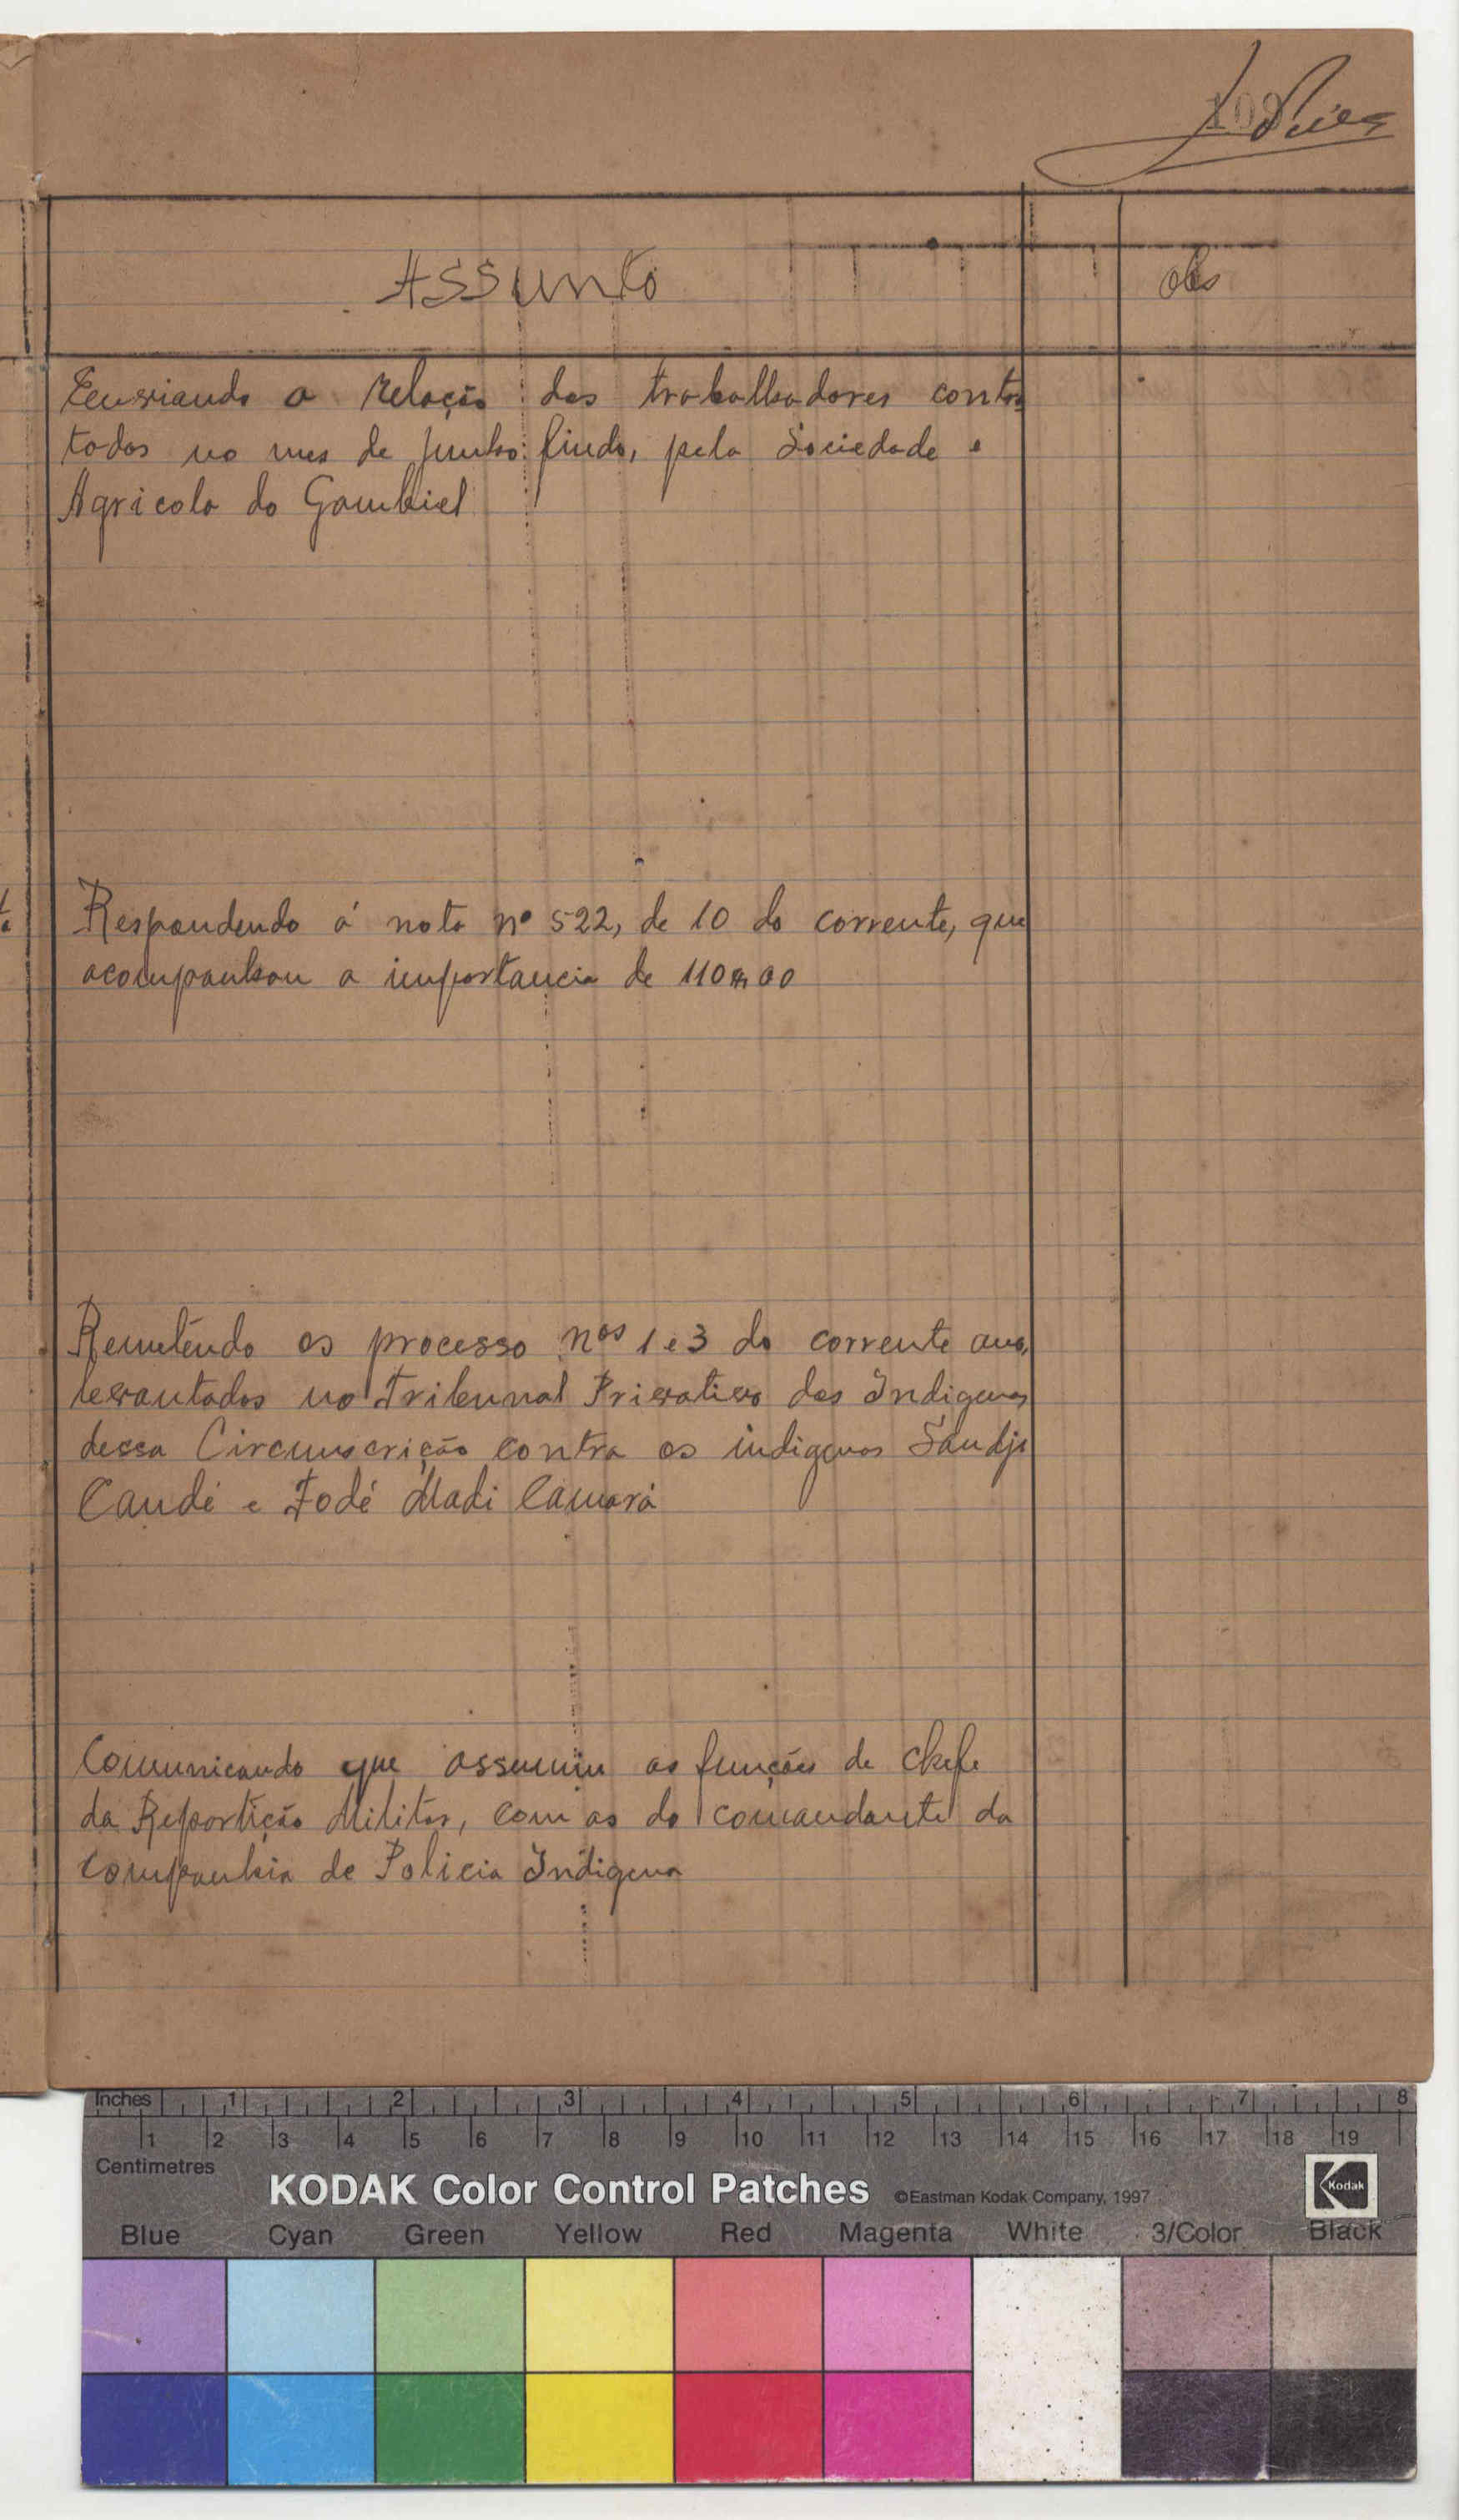 Assunto
obs
Envviando a relação dos trabalhadores contra
tados no mes de Junho findo, pela Sociedade
Agricola do Gambiel
Respondendo á nota nº 522, de 10 do corrente, que
acompanhou a importancia de 110$00
Remetendo os processo nºs 1 e 3 do corrente ano,
levantados no Tribunal Privativo dos Indigenas
dessa Circunscrição contra os indigenas Sandji
Candé e Fodé Madi Camará
Comunicando que assumiu as funções de chefe
da Repartição Militar, com as do comandante da
Companhia de Policia Indigena
Inches 1 2 3 4 5 6 7 8
1 2 3 4 5 6 7 8 9 10 11 12 13 14 15 16 17 18 19
Centimetres
KODAK Color Control Patches ©Eastman Kodak Company, 1997 Kodak
Blue Cyan Green Yellow Red Magenta White 3/Color Black